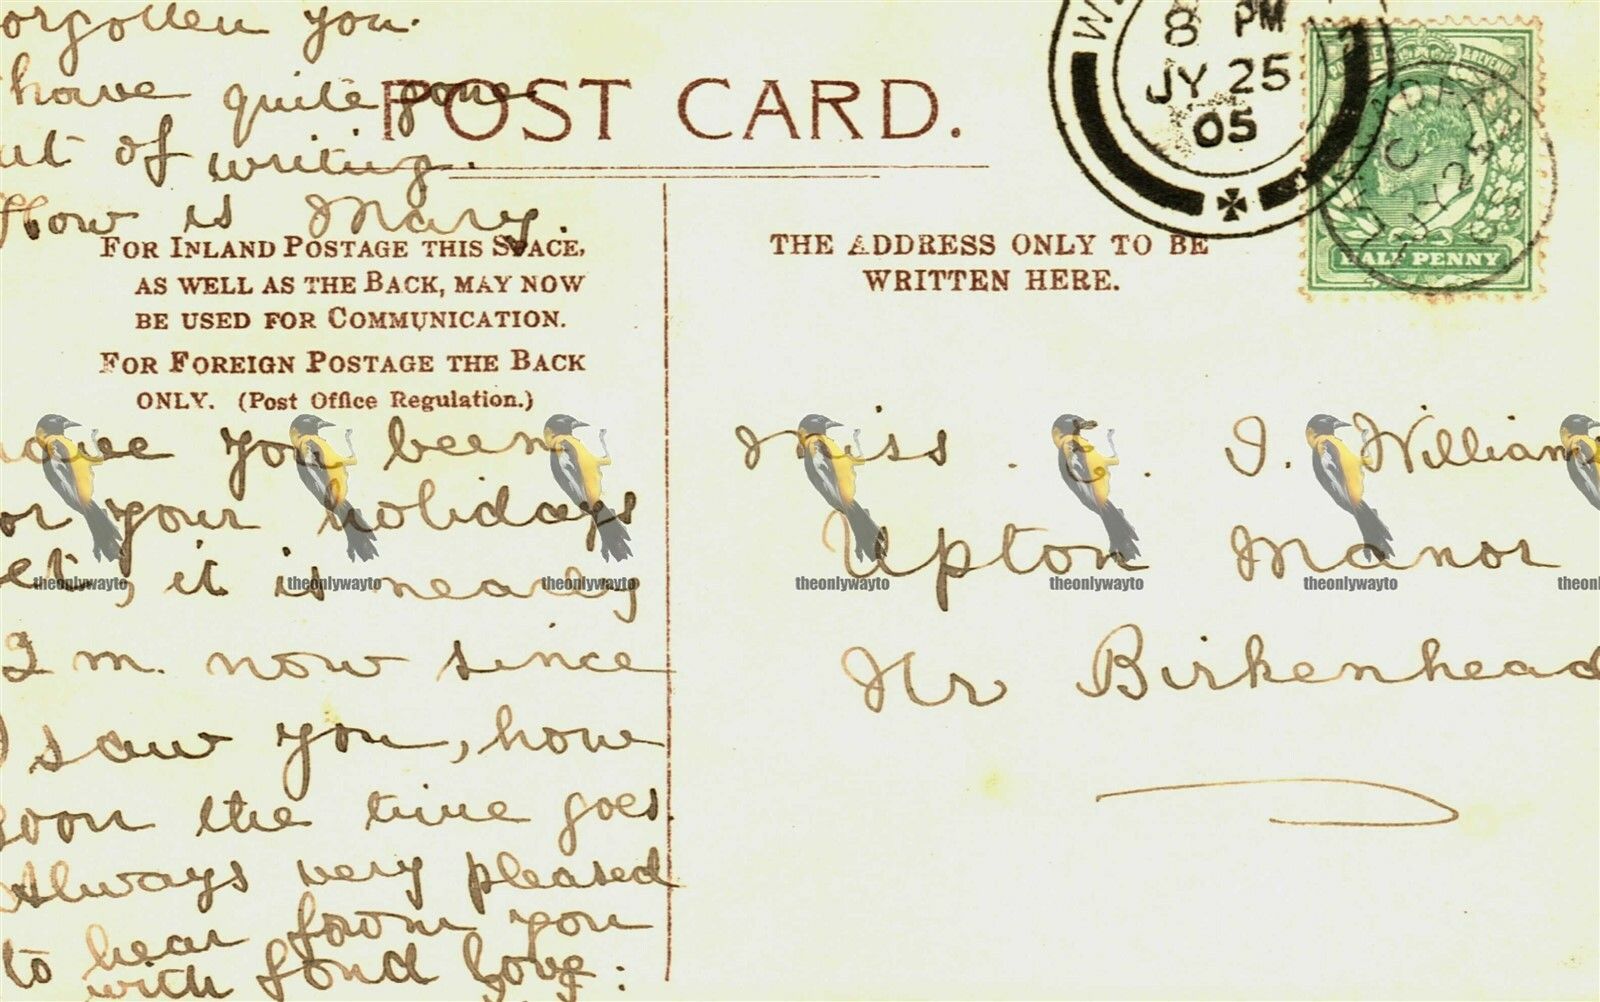 orgotten you.
have quite gone
ut of writing.
How is Mary.
POST CARD.
FOR INLAND POSTAGE THIS SPACE,
AS WELL AS THE BACK, MAY NOW
BE USED FOR COMMUNICATION.
FOR FOREIGN POSTAGE THE BACK
ONLY. (Post Office Regulation.)
have you been
for your holidays
et, it is nearly
2 m. now since
I saw you, how
soon the time goes.
Always very pleased
to hear from you
with fond love:
8 PM
JY 25
05
HALF PENNY
THE ADDRESS ONLY TO BE
WRITTEN HERE.
Miss. E. I. Williams
Upton Manor
Nr Birkenhead
theonlywayto theonlywayto theonlywayto theonlywayto theonlywayto theonlywayto theonl